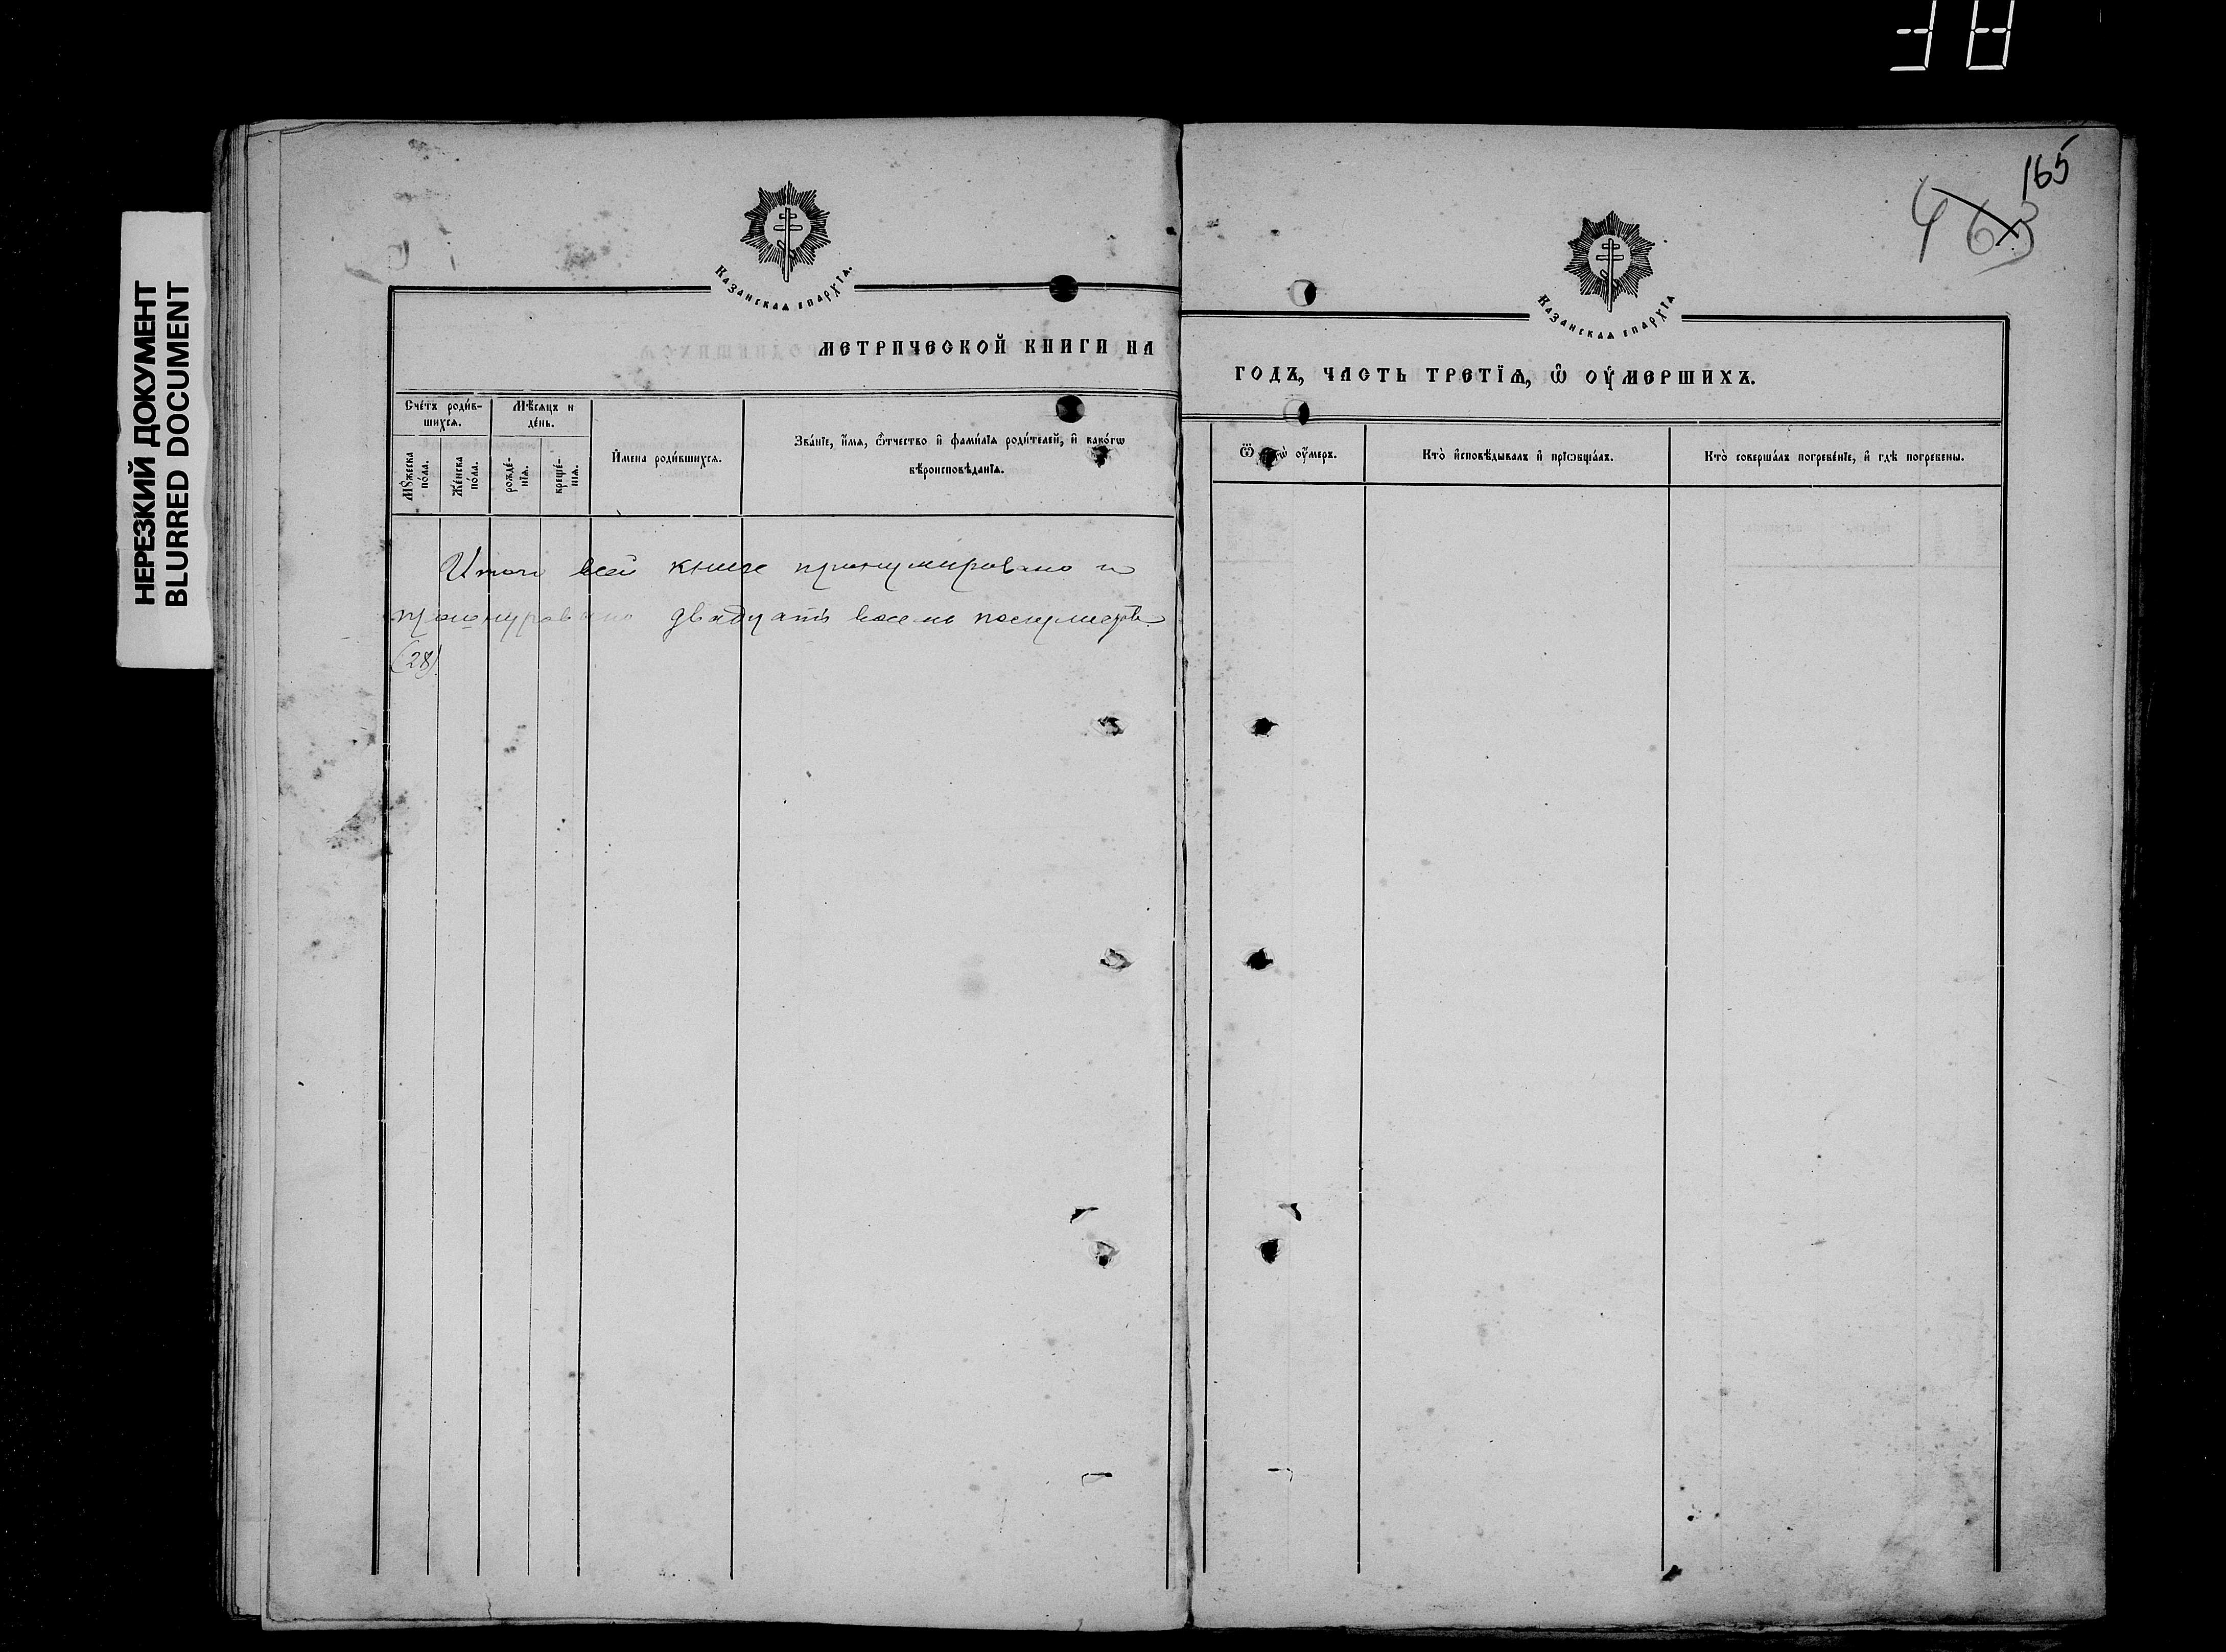 НЕРЕЗКИЙ ДОКУМЕНТ
BLURRED DOCUMENT
165
463
Казанскаѧ епархїѧ.
МЕТРИЧЕСКОЙ КНИГИ НА
Счётъ роди́в-
шихсѧ.
Мꙋ́жеска по́ла.
Же́нска по́ла.
Мѣ́сѧцъ и
де́нь.
рожде́-
нїѧ.
креще́-
нїѧ.
И҆мена роди́вшихсѧ.
Зва́нїе, и҆́мѧ, ѻ҆́тчество и҆ фами́лїѧ роди́телей, и҆ како́гѡ
вѣроисповѣ́данїѧ.
Итого всей книге пронумировано и
прошнуровано двадцать восемь
(28)
Казанскаѧ епархїѧ
ГОДЪ, ЧАСТЬ ТРЕТЇѦ, Ѽ ОУ҆МЕРШИХЪ.
оу҆́меръ.
Кто̀ и҆сповѣ́дывалъ и҆ прїѡбща́лъ.
Кто̀ соверша́лъ погребе́нїе, и҆ гдѣ̀ погребены.